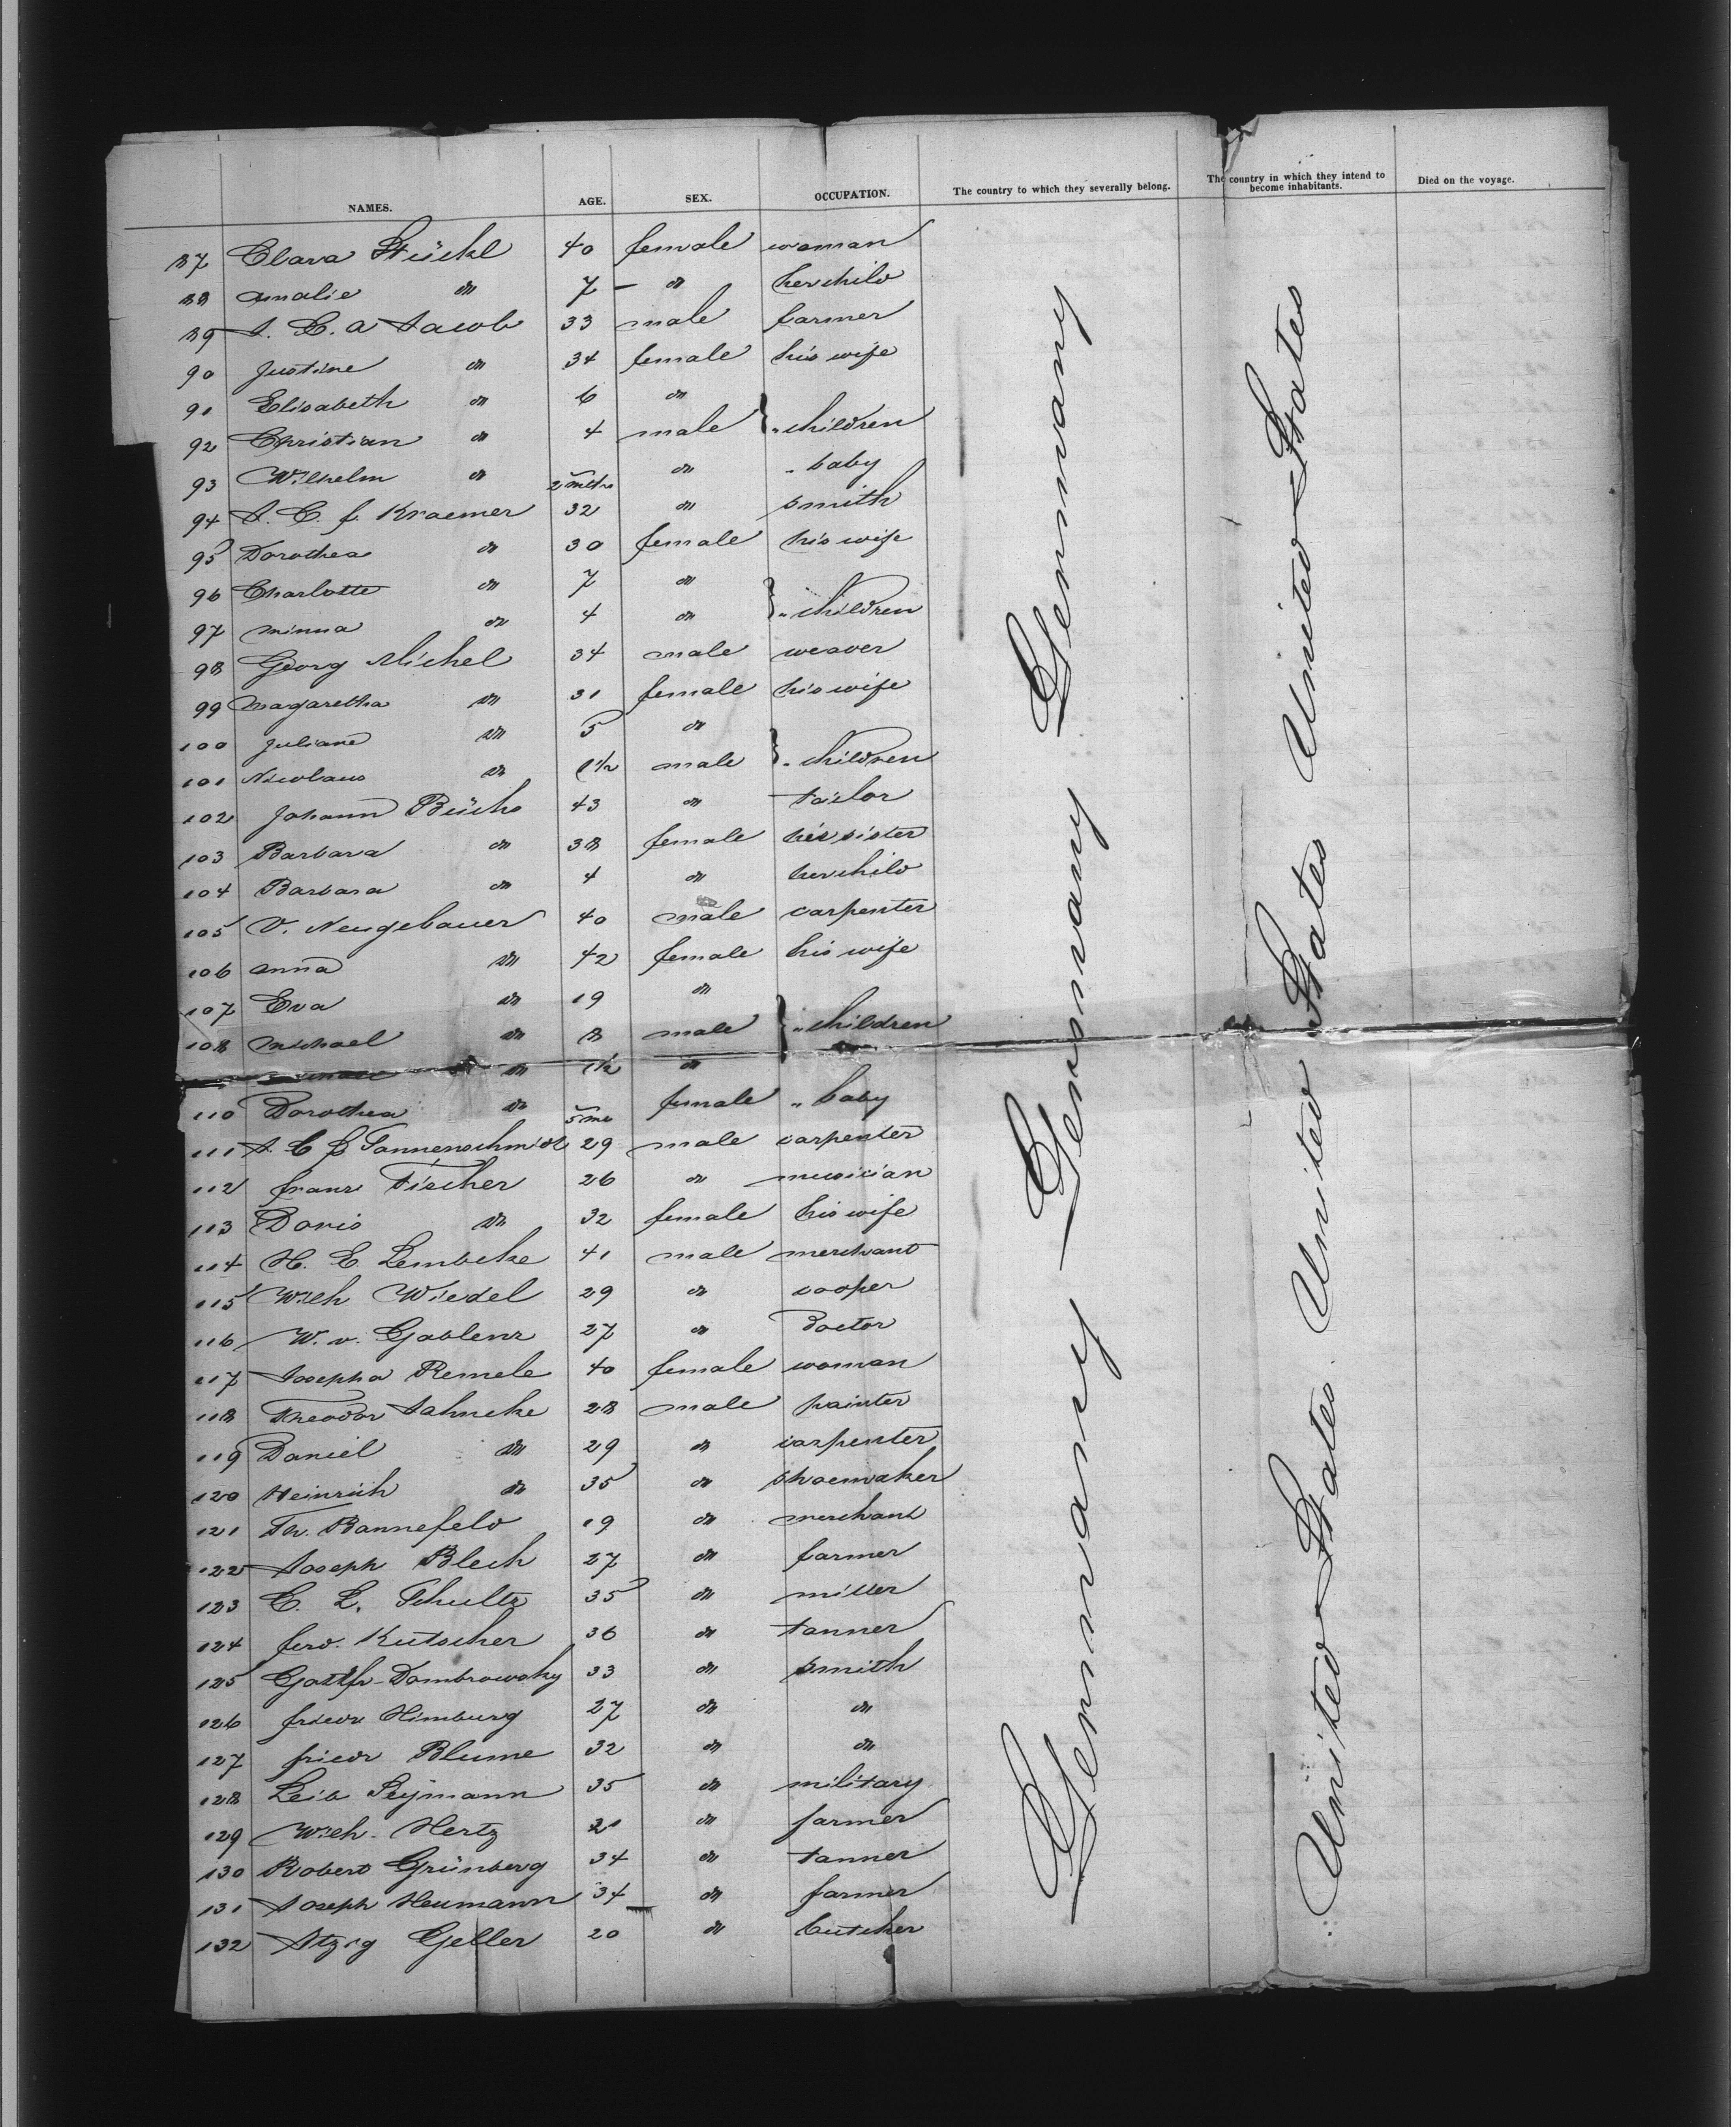 NAMES. AGE. SEX. OCCUPATION. The country to which they severally belong. The country in which they intend to become inhabitants. Died on the voyage.
87 Clara Stückl 40 female woman
88 Amalie do 7 — do her child
89 J. E. A Jacob 33 male farmer
90 Justine do 34 female his wife
91 Elisabeth do 6 do
92 Christian do 4 male } " children
93 Wilhelm do 2 mths do " baby
94 J. C. F. Kraemer 32 do smith
95 Dorothea do 30 female his wife
96 Charlotte do 7 do
97 Minna do 4 do } " children
98 Georg Michel 34 male weaver
99 Magaretha do 31 female his wife
100 Juliane do 5 do
101 Nicolaus do 1½ male } " children
102 Johann Büchs 43 do tailor
103 Barbara do 38 female his sister
104 Barbara do 4 do her child
105 V. Neugebauer 40 male carpenter
106 Anna do 42 female his wife
107 Eva do 19 do
108 Michael do 8 male } " children
do 1½ do
110 Dorothea do 5 mo female " baby
111 J. C. Tannenschmidt 29 male carpenter
112 Franz Fischer 26 do musician
113 Doris do 32 female his wife
114 H. E. Lembcke 41 male merchant
115 Wilh Wiedel 29 do cooper
116 W. v. Gablenz 27 do Doctor
117 Josepha Remele 40 female woman
118 Theodor Jahncke 28 male painter
119 Daniel do 29 do carpenter
120 Heinrich do 35 do shoemaker
121 Th. Bannefeld 19 do merchant
122 Joseph Blech 27 do farmer
123 C. L. Schultz 35 do miller
124 Ferd. Kutscher 36 do tanner
125 Gottfr. Dombrowsky 33 do smith
126 Friedr Himburg 27 do do
127 Friedr Blume 32 do do
128 Leib Seymann 35 do military
129 Wilh. Hertz 21 do farmer
130 Robert Grünberg 34 do tanner
131 Joseph Heumann 34 do farmer
132 Geller 20 do butcher
Germany Germany Germany Germany
United States United States United States